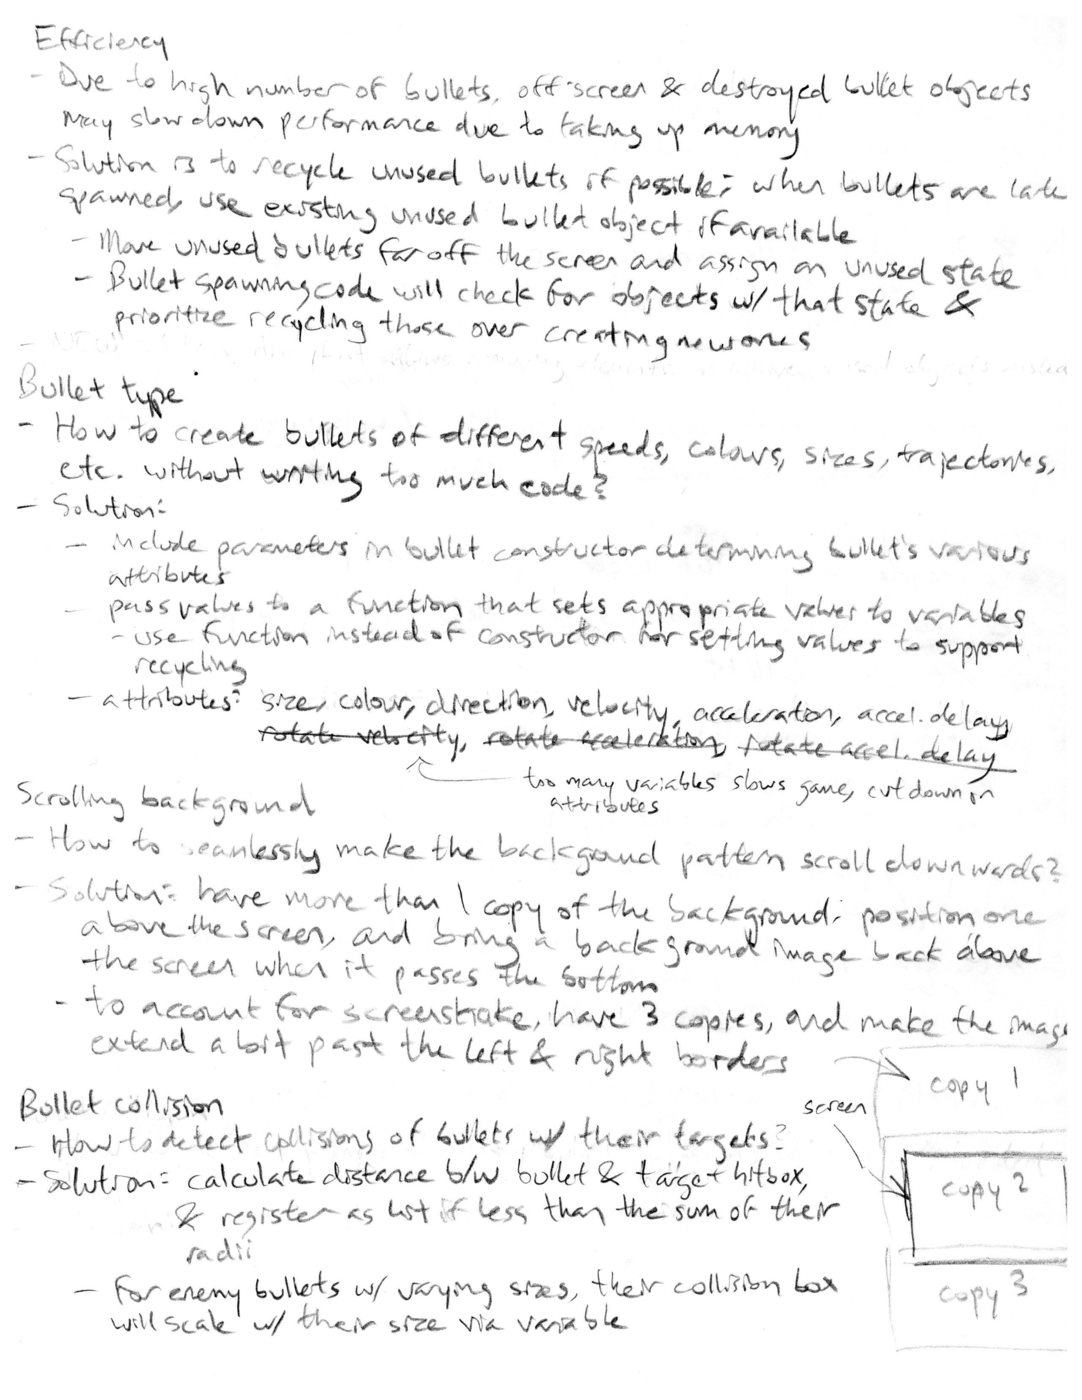 Efficiency
- Due to high number of bullets, off-screen & destroyed bullet objects
may slow down performance due to taking up memory
- Solution is to recycle unused bullets if possible; when bullets are late
spawned, use existing unused bullet object if available
- Move unused bullets far off the screen and assign an unused state
- Bullet spawning code will check for objects w/ that state &
prioritize recycling those over creating new ones
Bullet type
- How to create bullets of different speeds, colours, sizes, trajectories,
etc. without writing too much code?
- Solution:
- include parameters in bullet constructor determining bullet's various
attributes
- pass values to a function that sets appropriate values to variables
- use function instead of constructor for setting values to support
recycling
- attributes: size, colour, direction, velocity, acceleration, accel. delay,
rotate velocity, rotate acceleration, rotate accel. delay
too many variables slows game, cut down on
attributes
Scrolling background
- How to seamlessly make the backgound pattern scroll downwards?
- Solution: have more than 1 copy of the background; position one
above the screen, and bring a background image back above
the screen when it passes the bottom
- to account for screenshake, have 3 copies, and make the image
extend a bit past the left & right borders
copy 1
screen
Bullet collision
- How to detect collisions of bullets w/ their targets?
- Solution: calculate distance b/w bullet & target hitbox,
copy 2
& register as hit if less than the sum of their
radii
- For enemy bullets w/ varying sizes, their collision box
copy 3
will scale w/ their size via variable